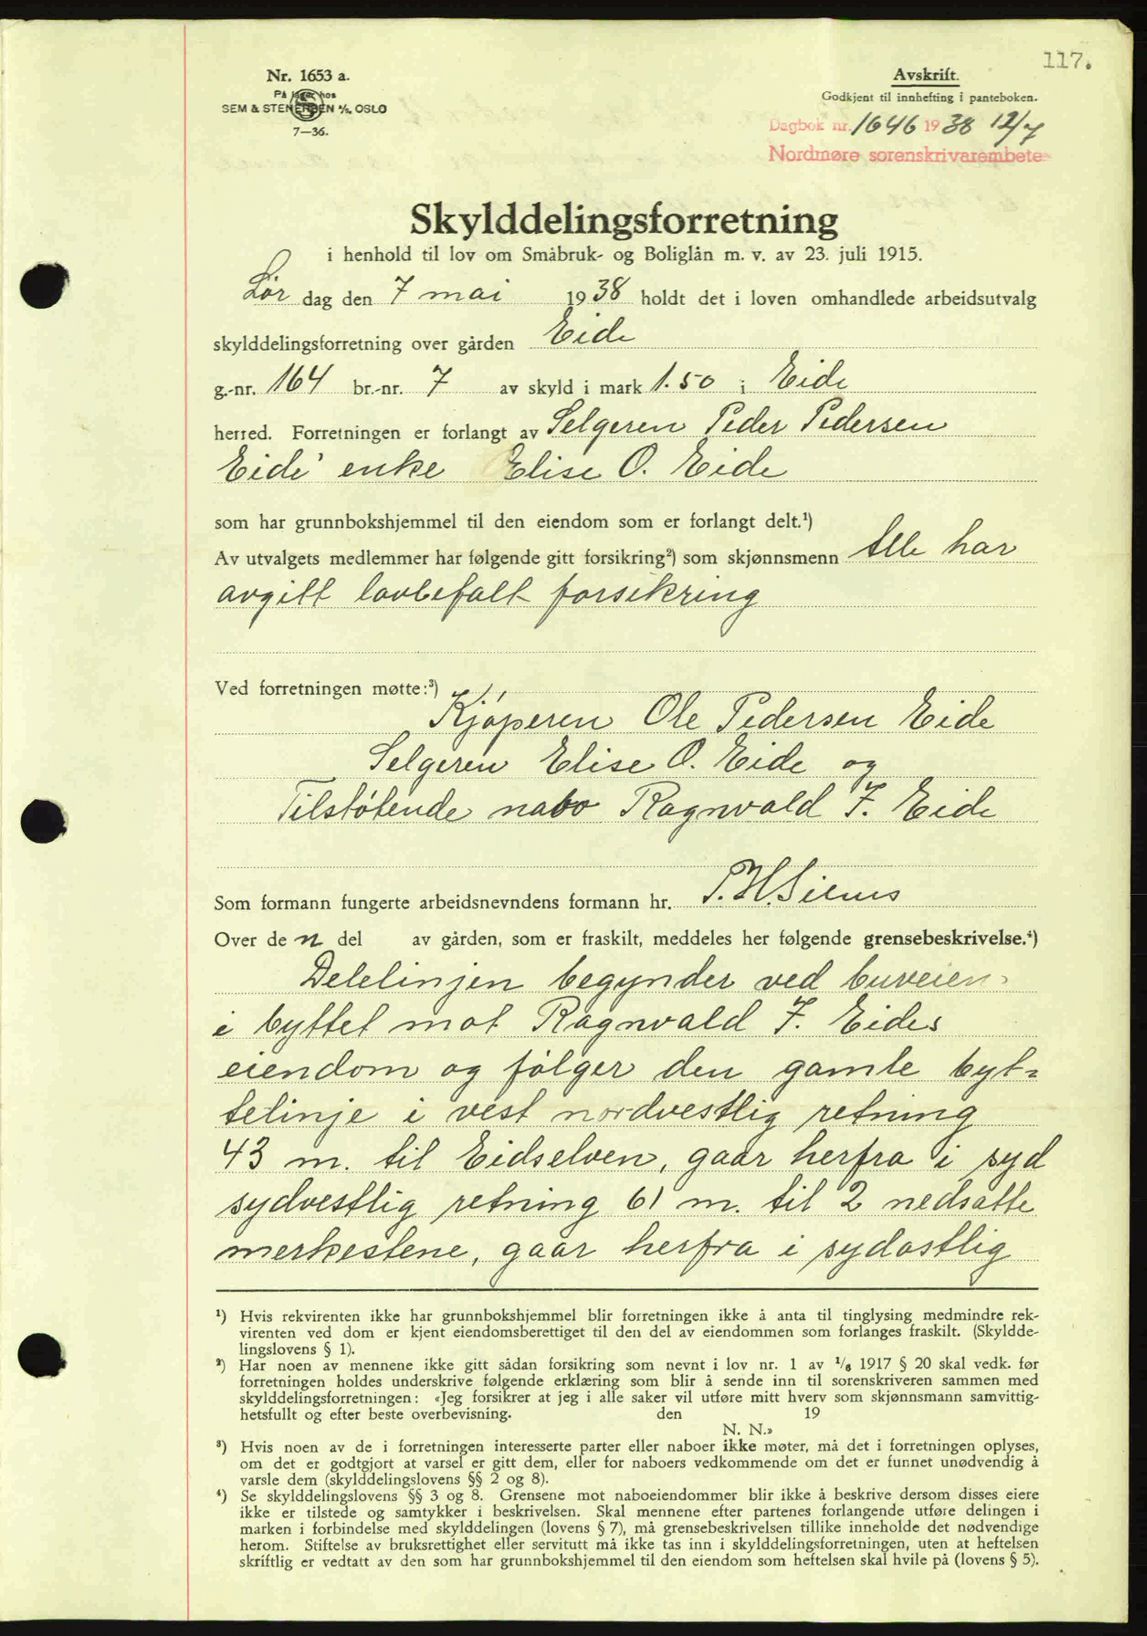 117.
Nr. 1653 a.
På lager hos
SEM & STENERSEN A/S. OSLO
7—36.
Avskrift.
Godkjent til innhefting i panteboken.
Dagbok nr. 1646 1938 12/7
Nordmøre sorenskrivarembete
Skylddelingsforretning
i henhold til lov om Småbruk- og Boliglån m. v. av 23. juli 1915.
Lør dag den 7 mai 1938 holdt det i loven omhandlede arbeidsutvalg
skylddelingsforretning over gården Eide
g.-nr. 164 br.-nr. 7 av skyld i mark 1.50 i Eide
herred. Forretningen er forlangt av Selgeren Peder Pedersen
Eide' enke Elise O. Eide
som har grunnbokshjemmel til den eiendom som er forlangt delt.¹)
Av utvalgets medlemmer har følgende gitt forsikring²) som skjønnsmenn Alle har
avgitt lovbefalt forsikring
Ved forretningen møtte:³)
Kjøperen Ole Pedersen Eide
Selgeren Elise O. Eide og
Tilstøtende nabo Ragnvald F. Eide
Som formann fungerte arbeidsnevndens formann hr. P. H. Silnes
Over de n del av gården, som er fraskilt, meddeles her følgende grensebeskrivelse.⁴)
Delelinjen begynder ved buveien
i byttet mot Ragnvald F. Eides
eiendom og følger den gamle byt-
telinje i vest nordvestlig retning
43 m. til Eidselven, gaar herfra i syd
sydvestlig retning 61 m. til 2 nedsatte
merkestene, gaar herfra i sydostlig
¹) Hvis rekvirenten ikke har grunnbokshjemmel blir forretningen ikke å anta til tinglysing medmindre rek-
virenten ved dom er kjent eiendomsberettiget til den del av eiendommen som forlanges fraskilt. (Skyldde-
lingslovens § 1).
²) Har noen av mennene ikke gitt sådan forsikring som nevnt i lov nr. 1 av 1/6 1917 § 20 skal vedk. før
forretningen holdes underskrive følgende erklæring som blir å sende inn til sorenskriveren sammen med
skylddelingsforretningen: «Jeg forsikrer at jeg i alle saker vil utføre mitt hverv som skjønnsmann samvittig-
hetsfullt og efter beste overbevisning. den 19
N. N.»
³) Hvis noen av de i forretningen interesserte parter eller naboer ikke møter, må det i forretningen oplyses,
om det er godtgjort at varsel er gitt dem, eller for naboers vedkommende om det er funnet unødvendig å
varsle dem (skylddelingslovens §§ 2 og 8).
⁴) Se skylddelingslovens §§ 3 og 8. Grensene mot naboeiendommer blir ikke å beskrive dersom disses eiere
ikke er tilstede og samtykker i beskrivelsen. Skal mennene efter partenes forlangende utføre delingen i
marken i forbindelse med skylddelingen (lovens § 7), må grensebeskrivelsen tillike inneholde det nødvendige
herom. Stiftelse av bruksrettighet eller servitutt må ikke tas inn i skylddelingsforretningen, uten at heftelsen
skriftlig er vedtatt av den som har grunnbokshjemmel til den eiendom som heftelsen skal hvile på (lovens § 5).